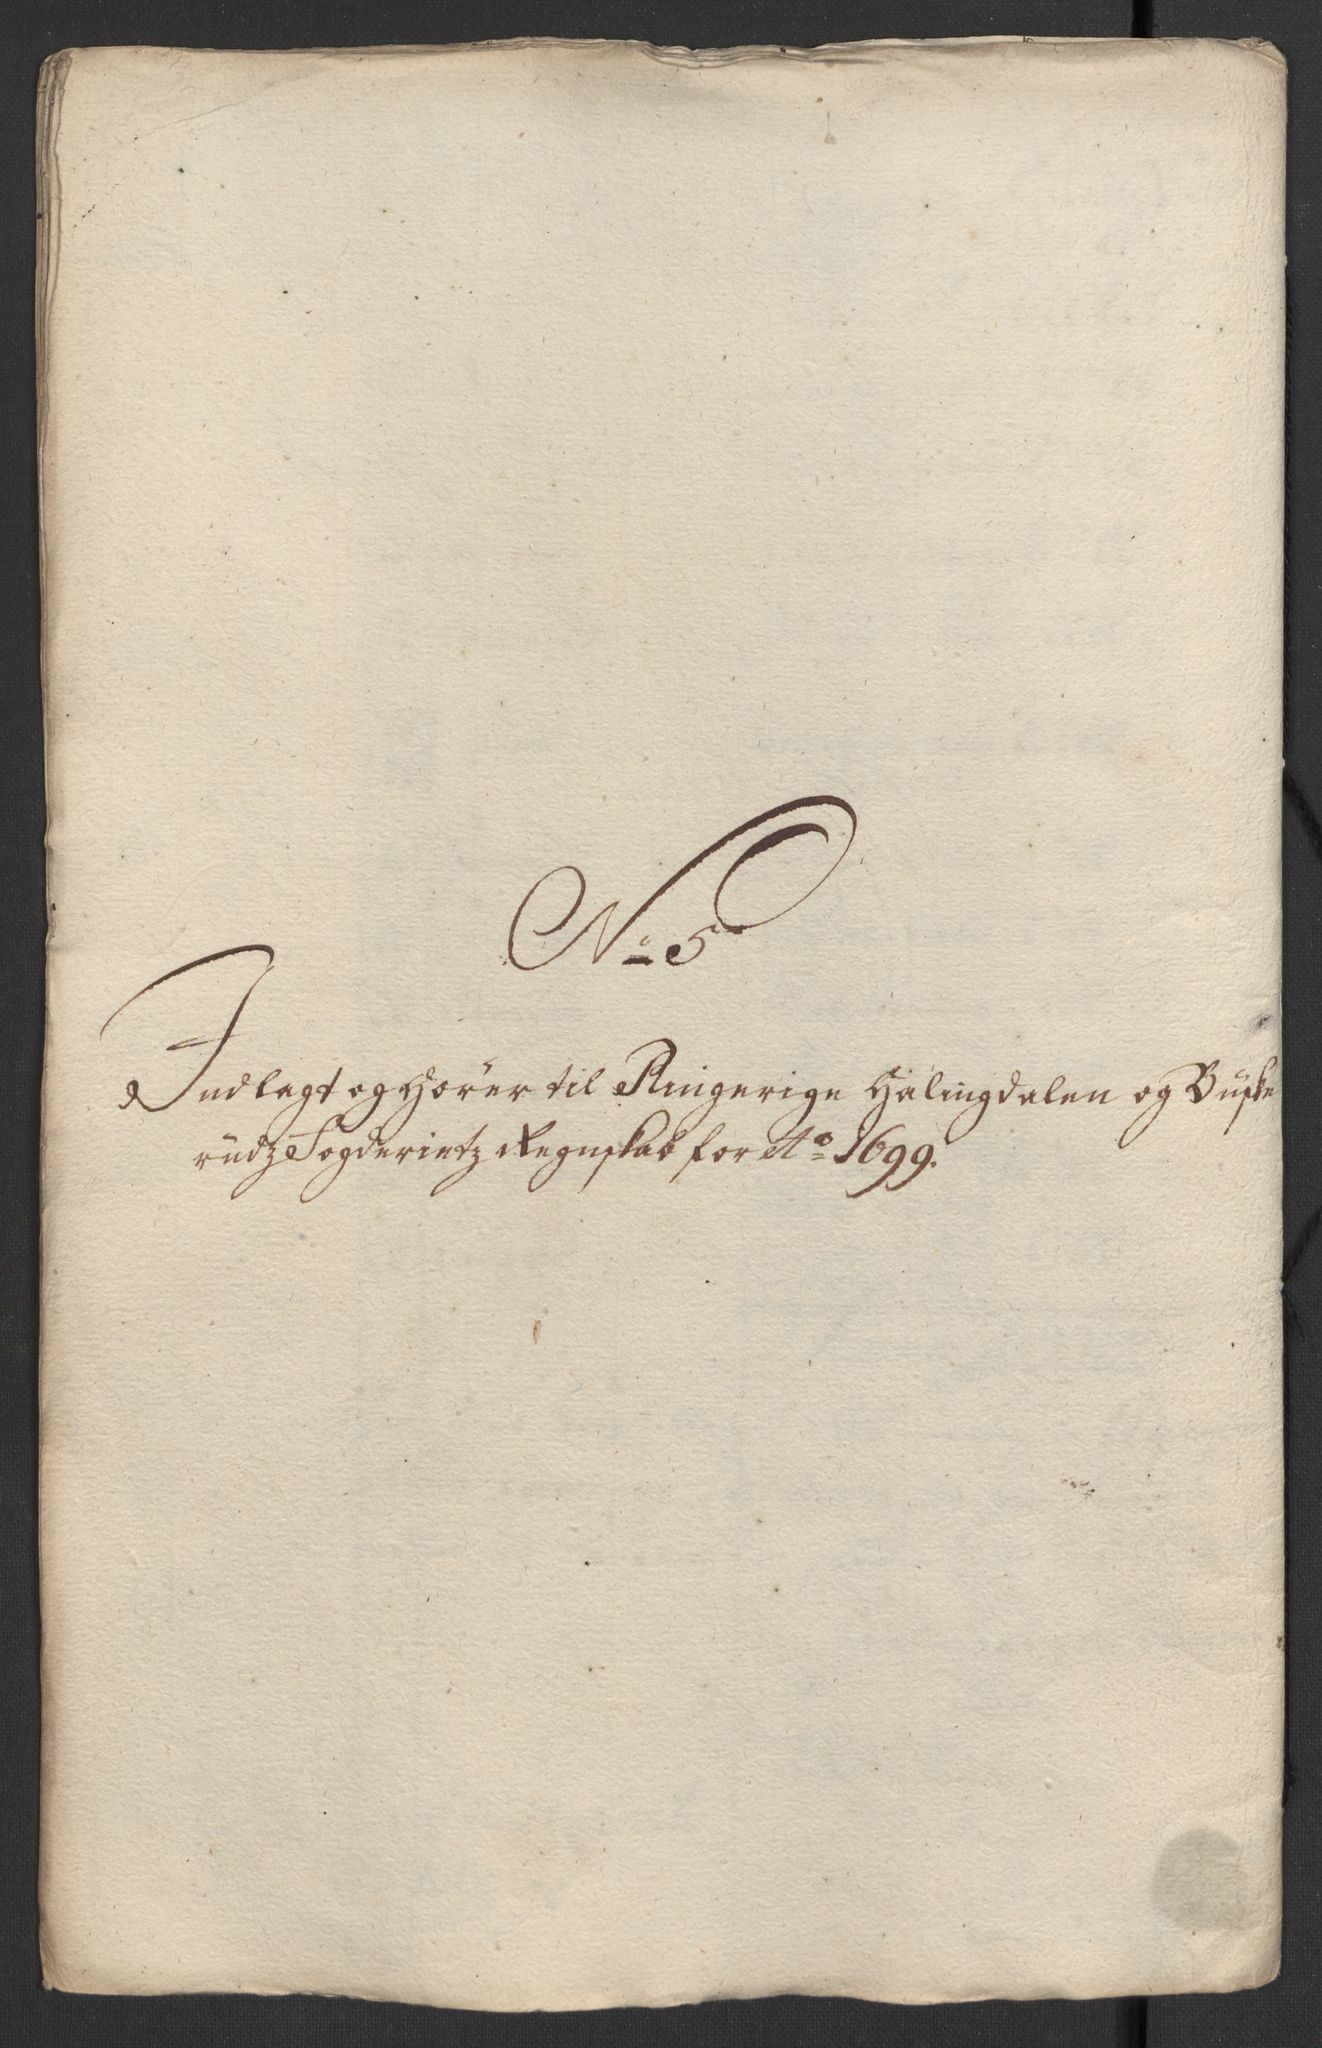 No 5
Indlagt og Hörer til Ringerige Halingdalen og Buske
rudz Fogderietz Regnskab for Ao 1699.